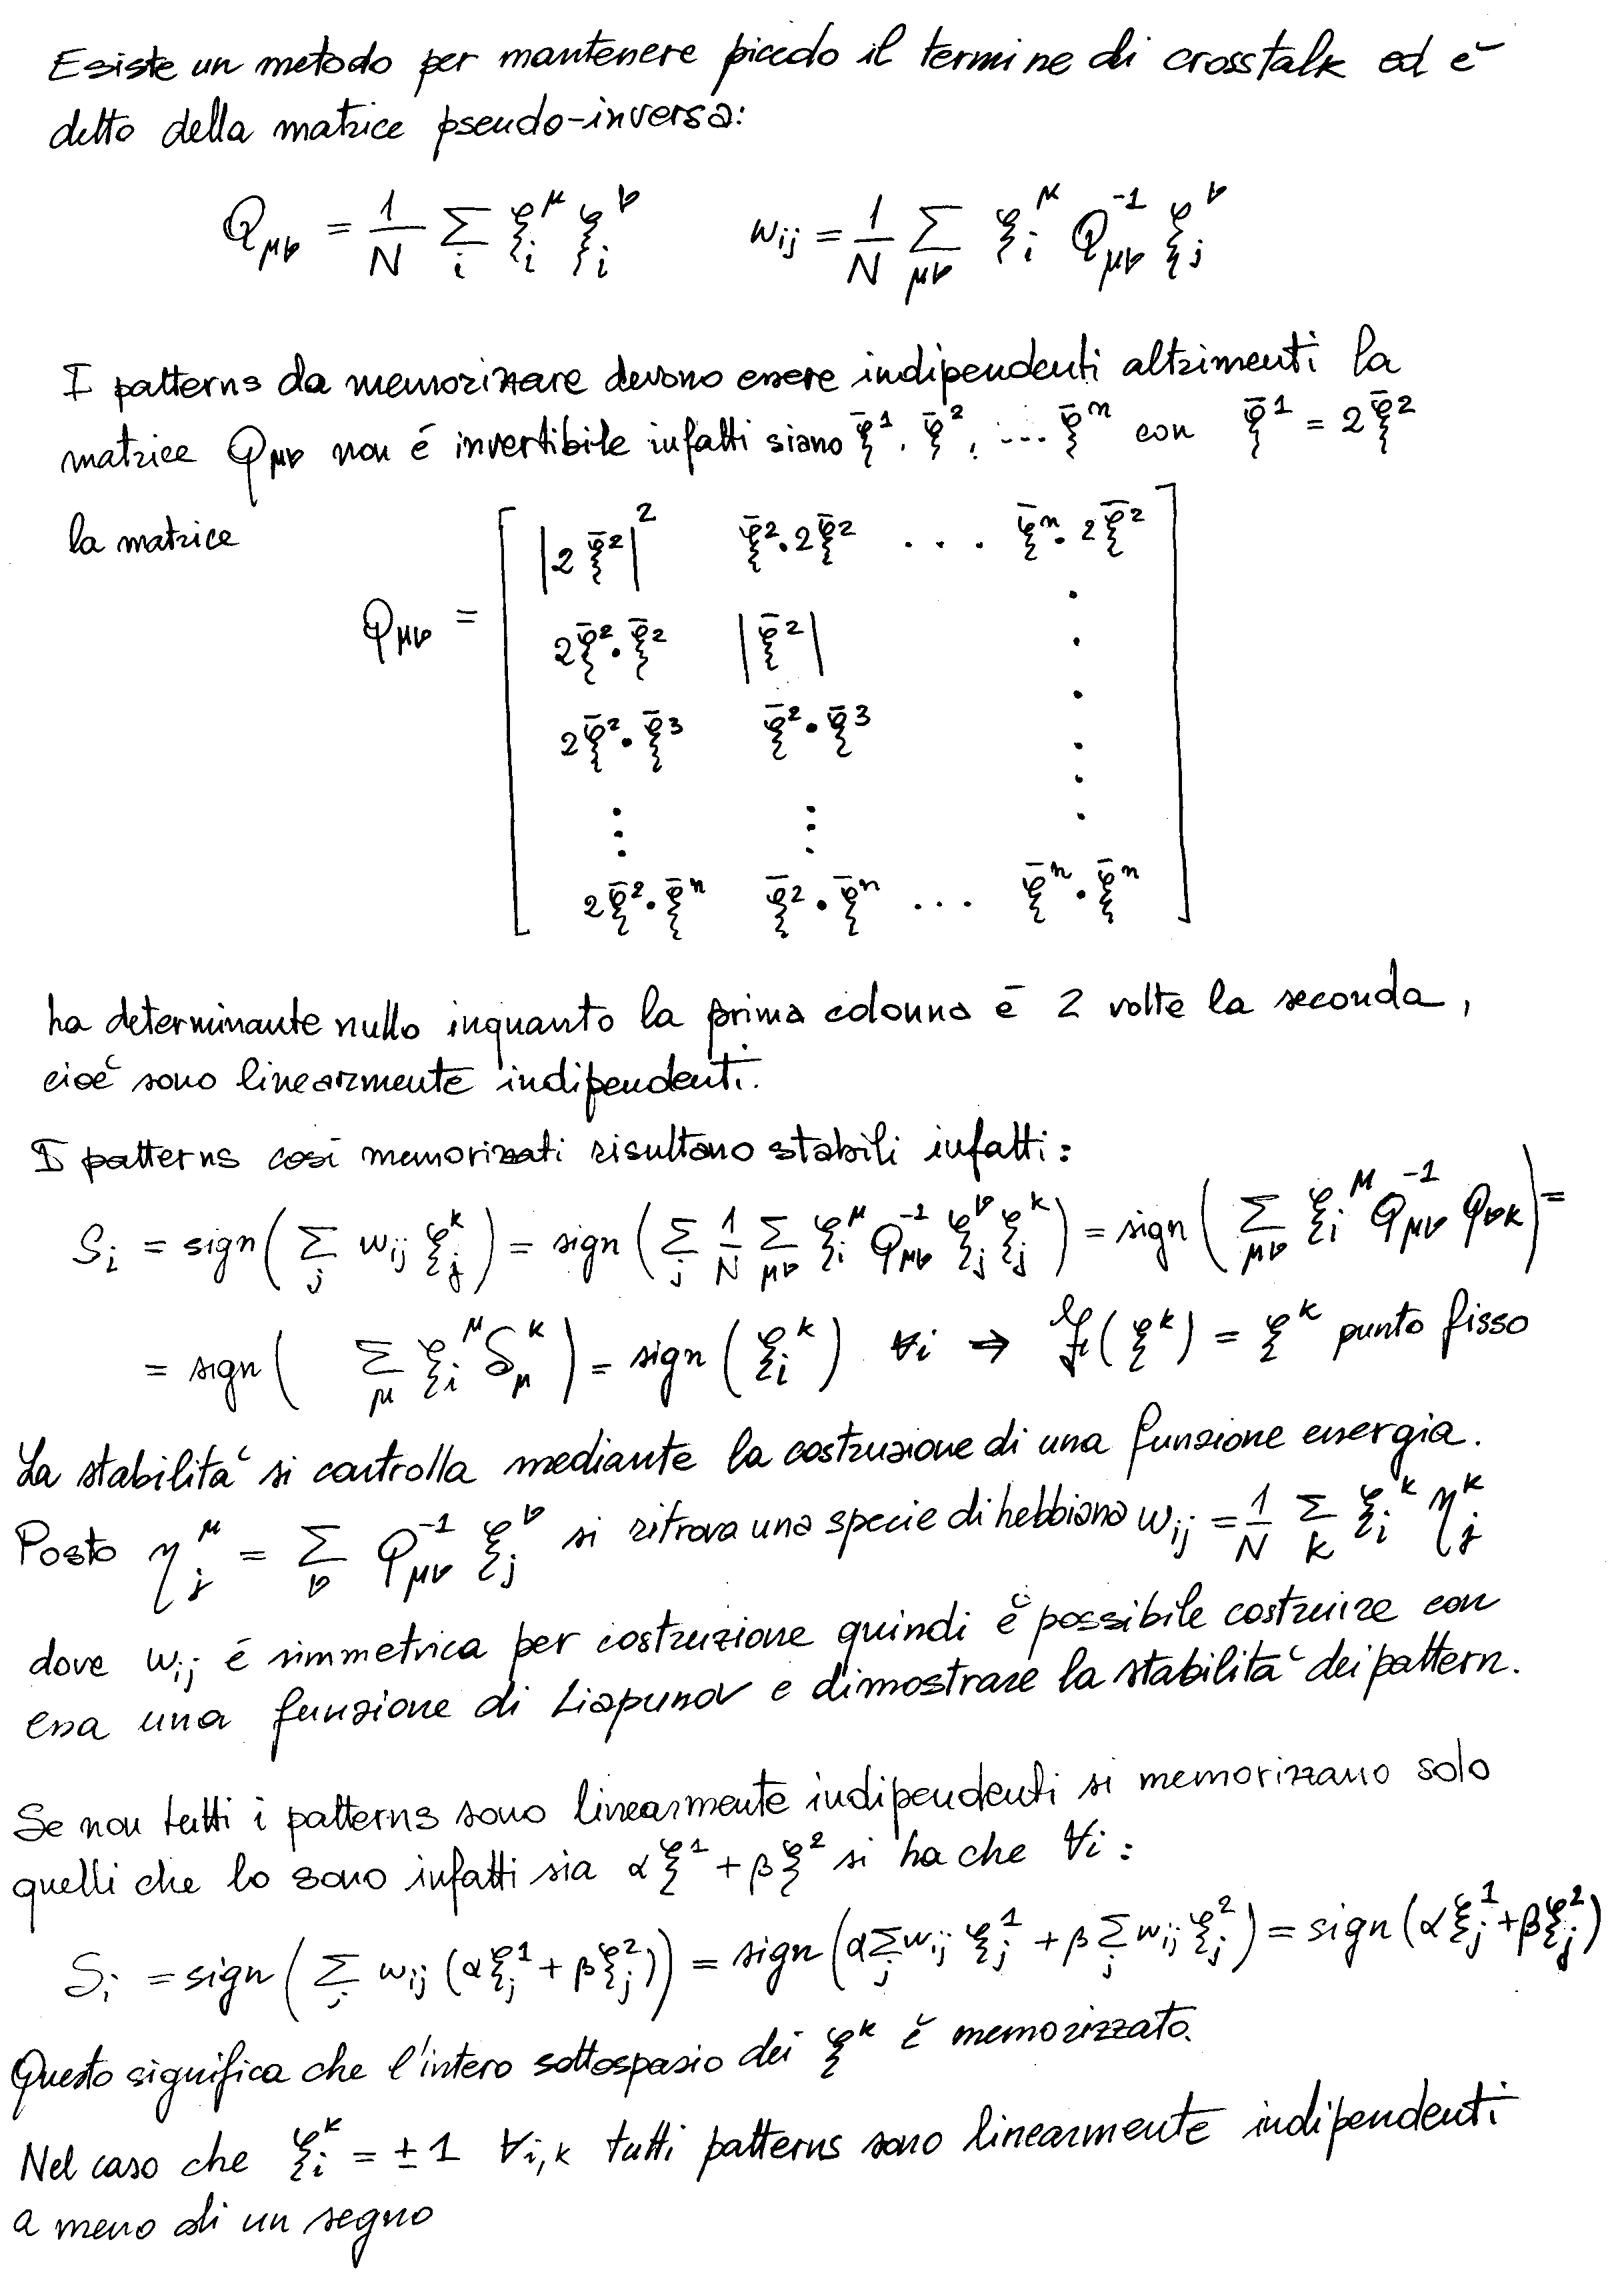 Esiste un metodo per mantenere piccolo il termine di crosstalk ed è
detto della matrice pseudo-inversa:
Q_{μν} = 1/N Σ_i ξ_i^μ ξ_i^ν    w_{ij} = 1/N Σ_{μν} ξ_i^μ Q_{μν}^{-1} ξ_j^ν
I patterns da memorizzare devono essere indipendenti altrimenti la
matrice Q_{μν} non é invertibile infatti siano ξ̄^1, ξ̄^2, ... ξ̄^n con ξ̄^1 = 2ξ̄^2
la matrice
|2ξ̄^2|^2    ξ̄^2·2ξ̄^2    ...    ξ̄^n·2ξ̄^2
Q_{μν} =    2ξ̄^2·ξ̄^2    |ξ̄^2|
2ξ̄^2·ξ̄^3    ξ̄^2·ξ̄^3
2ξ̄^2·ξ̄^n    ξ̄^2·ξ̄^n    ...    ξ̄^n·ξ̄^n
ha determinante nullo inquanto la prima colonna è 2 volte la seconda,
cioè sono linearmente indipendenti.
I patterns così memorizzati risultano stabili infatti:
S_i = sign( Σ_j w_{ij} ξ_j^k ) = sign( Σ_j 1/N Σ_{μν} ξ_i^μ Q_{μν}^{-1} ξ_j^ν ξ_j^k ) = sign( Σ_{μν} ξ_i^μ Q_{μν}^{-1} Q_{νk} ) =
= sign( Σ_μ ξ_i^μ δ_μ^k ) = sign( ξ_i^k ) ∀i ⇒ f(ξ^k) = ξ^k punto fisso
La stabilità si controlla mediante la costruzione di una funzione energia.
Posto η_j^μ = Σ_ν Q_{μν}^{-1} ξ_j^ν si ritrova una specie di hebbiana w_{ij} = 1/N Σ_k ξ_i^k η_j^k
dove w_{ij} é simmetrica per costruzione quindi è possibile costruire con
essa una funzione di Liapunov e dimostrare la stabilità dei pattern.
Se non tutti i patterns sono linearmente indipendenti si memorizzano solo
quelli che lo sono infatti sia αξ^1 + βξ^2 si ha che ∀i:
S_i = sign( Σ_j w_{ij} (αξ_j^1 + βξ_j^2) ) = sign( αΣ_j w_{ij} ξ_j^1 + βΣ_j w_{ij} ξ_j^2 ) = sign( αξ_j^1 + βξ_j^2 )
Questo significa che l'intero sottospazio dei ξ^k è memorizzato.
Nel caso che ξ_i^k = ±1 ∀i,k tutti patterns sono linearmente indipendenti
a meno di un segno